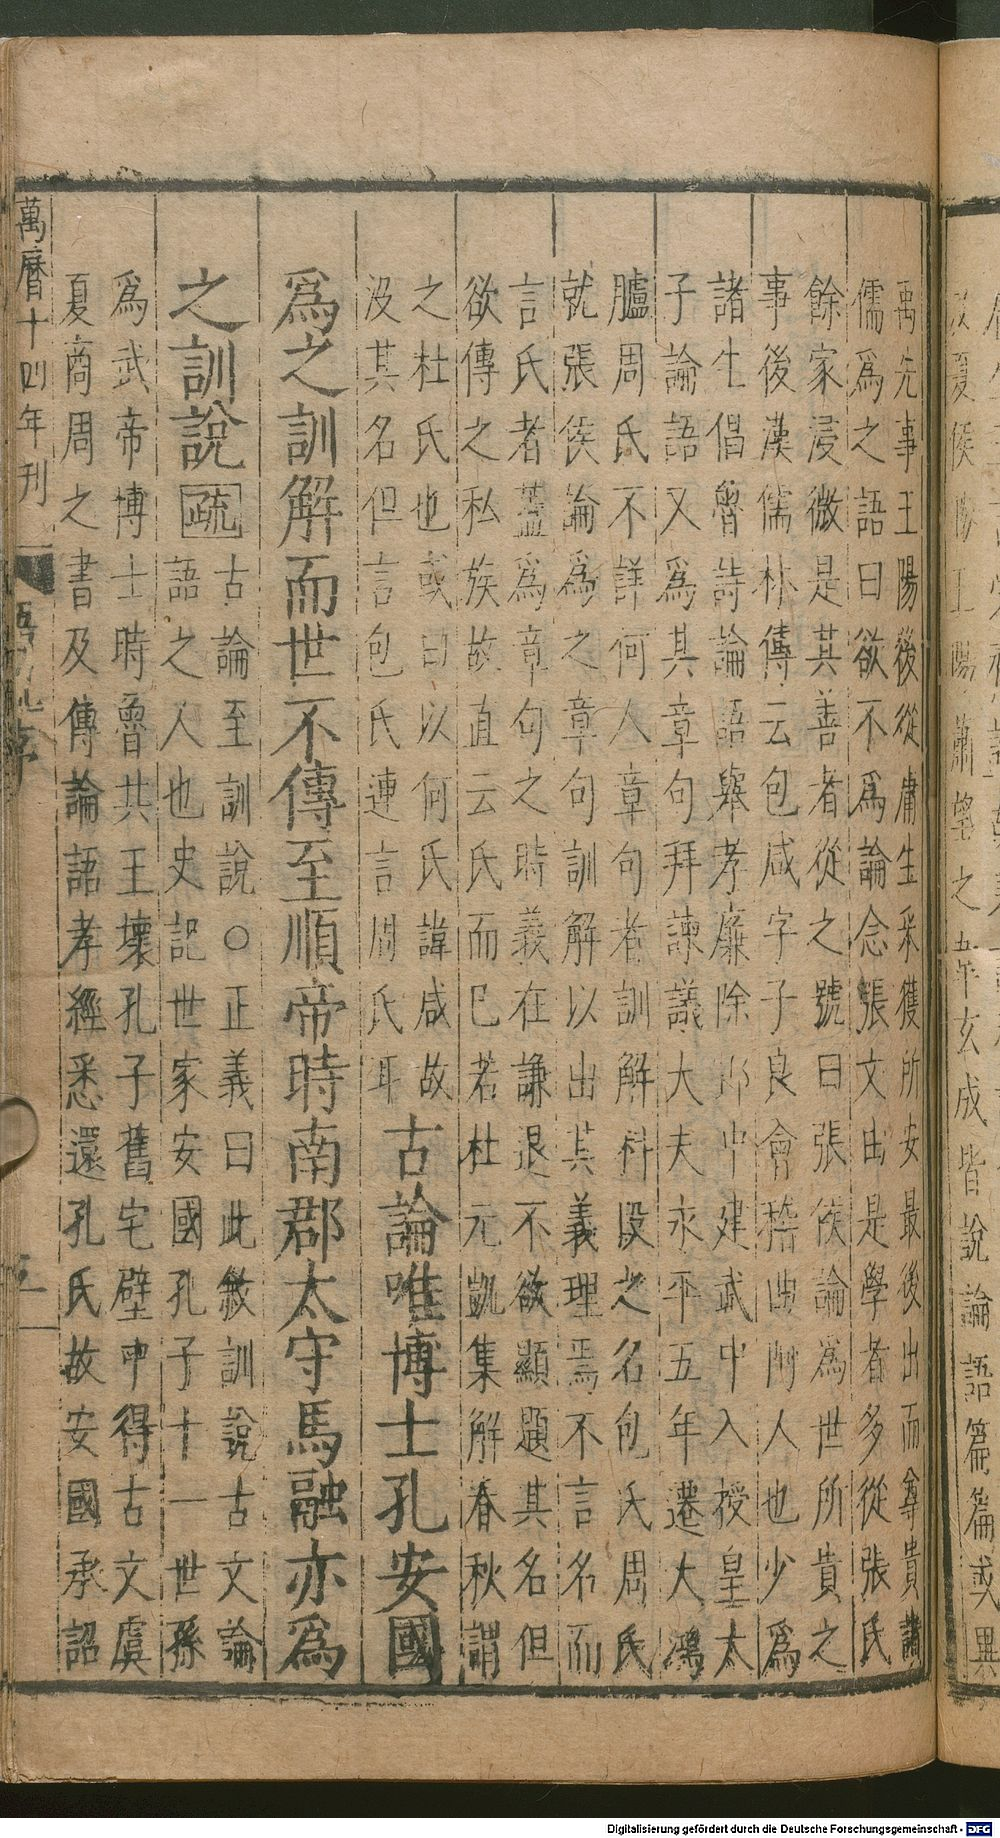 夏侯勝王陽蕭望之韋玄成皆說論語篇篇或異
禹先事王陽後從庸生采獲所安最後出而尊貴諸
儒爲之語曰欲不爲論念張文由是學者多從張氏
餘家浸微是其善者從之號曰張侯論爲世所貴之
事後漢儒林傳云包咸字子良會稽曲阿人也少爲
諸生倡魯詩論語舉孝廉除郎中建武中入授皇太
子論語又爲其章句拜諫議大夫永平五年遷大鴻
臚周氏不詳何人章句者訓解科段之名包氏周氏
就張侯論爲之章句訓解以出其義理焉不言名而
言氏者蓋爲章句之時義在謙退不欲顯題其名但
欲傳之私族故直云氏而已若杜元凱集解春秋謂
之杜氏也或曰以何氏諱咸故
沒其名但言包氏連言周氏耳
古論唯博士孔安國
爲之訓解而世不傳至順帝時南郡太守馬融亦爲
之訓說 疏
古論至訓說○正義曰此敘訓說古文論
語之人也史記世家安國孔子十一世孫
爲武帝博士時魯共王壞孔子舊宅壁中得古文虞
夏商周之書及傳論語孝經悉還孔氏故安國承詔
萬曆十四年刊
語疏序
五
Digitalisierung gefördert durch die Deutsche Forschungsgemeinschaft - DFG